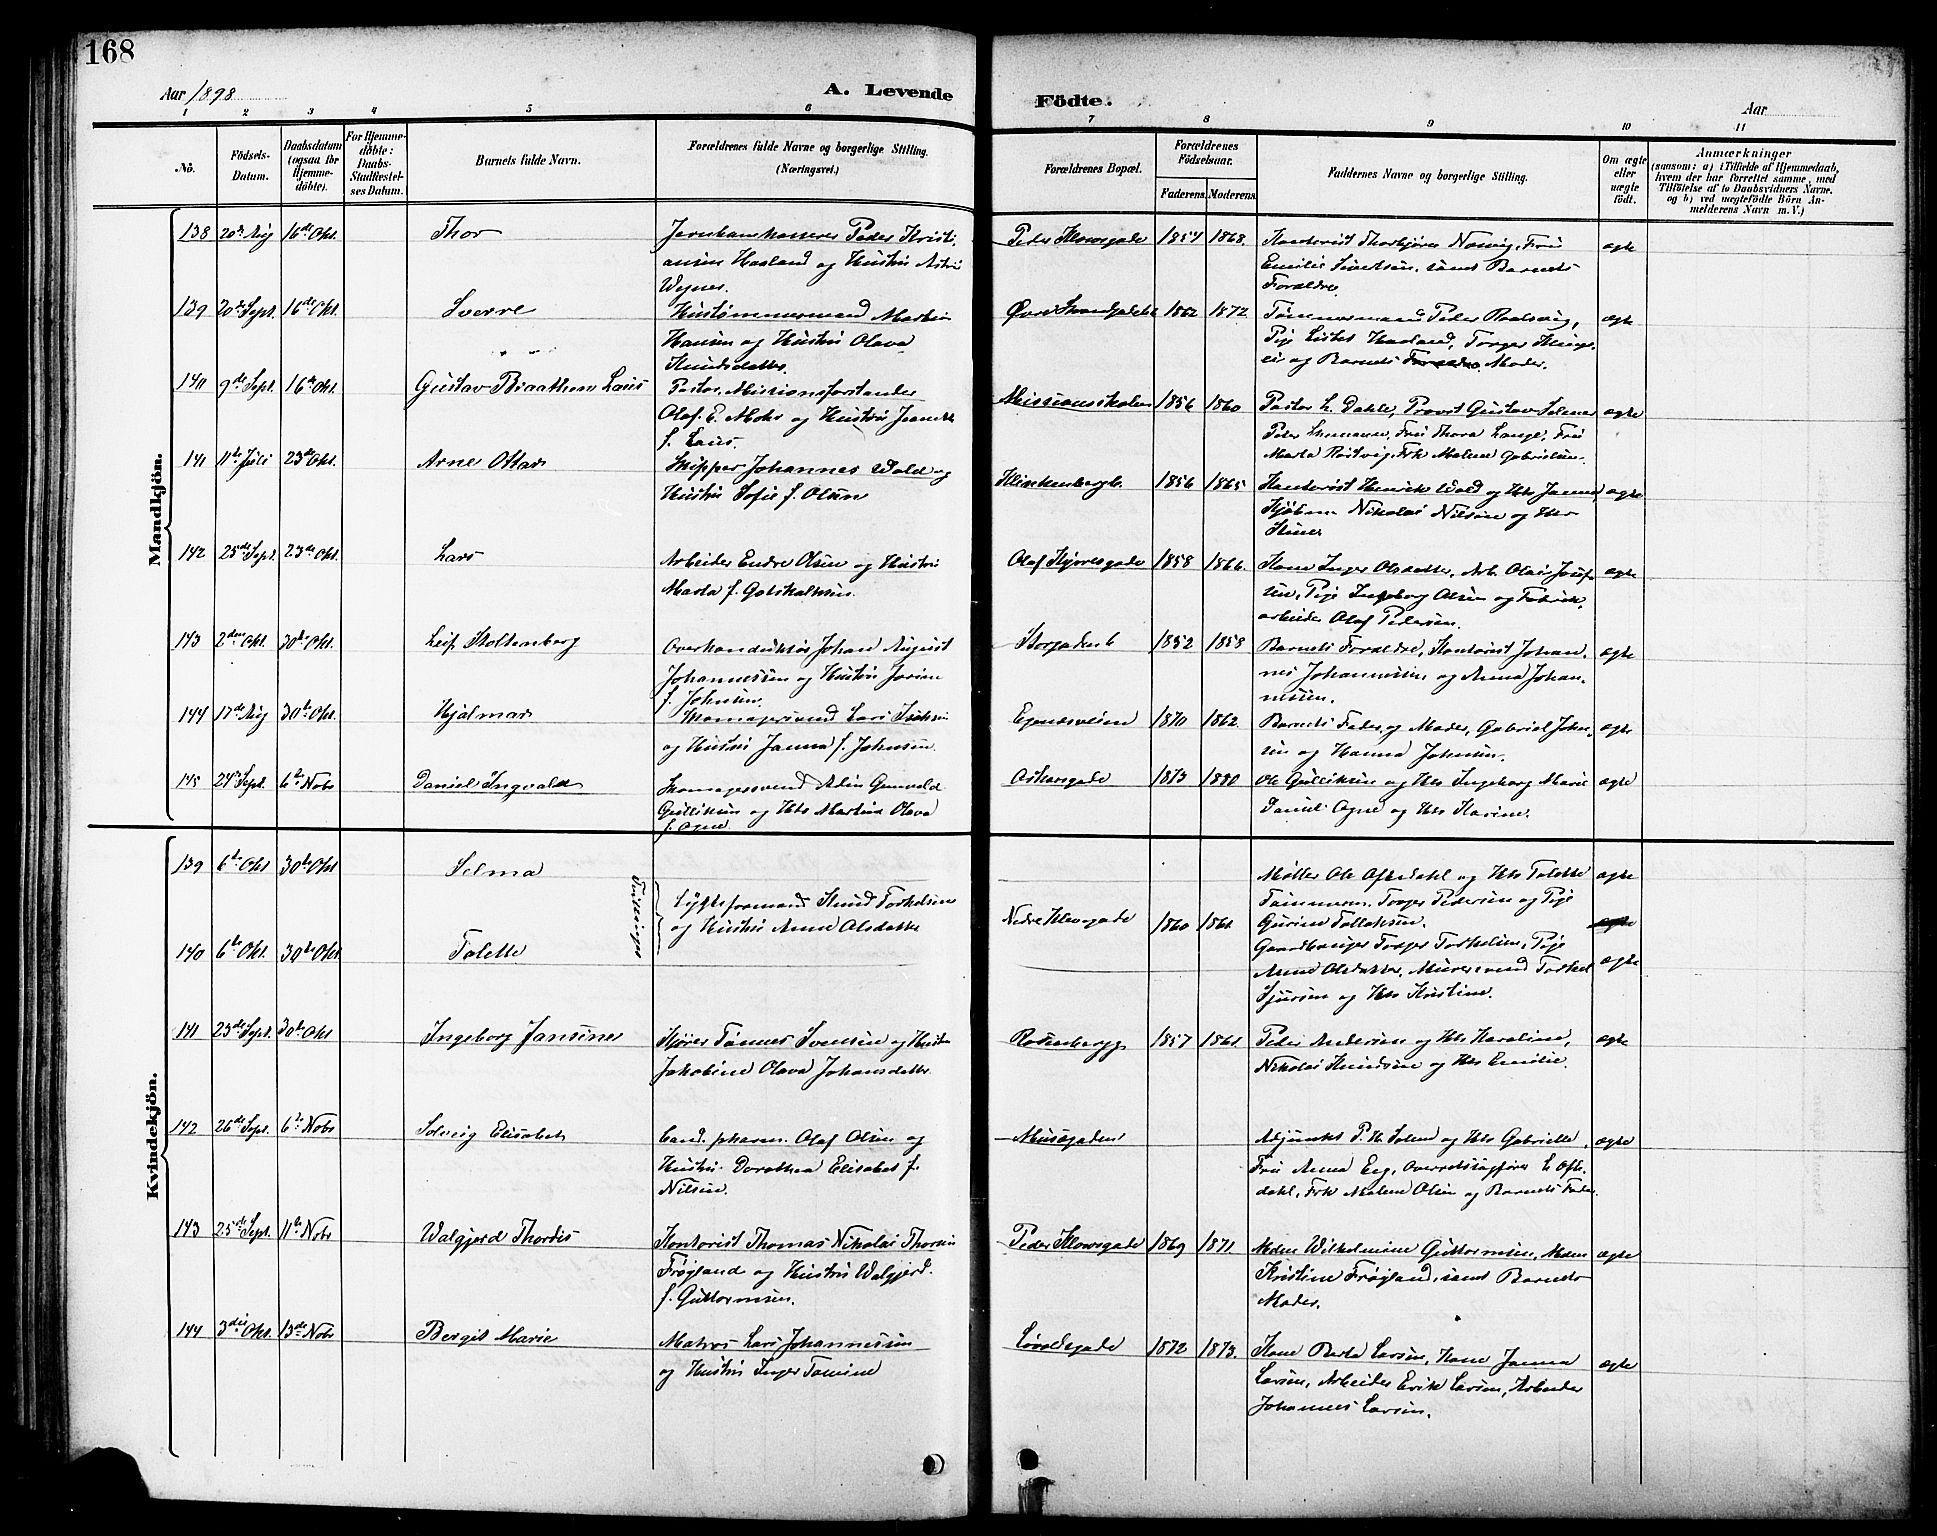 168
Aar 1898
A. Levende
Födte.
Aar
1 2 3 4 5 6 7 8 9 10 11
No.
Födsels-
Datum.
Daabsdatum
(ogsaa for
Hjemme-
döbte).
For Hjemme-
döbte:
Daabs-
Stadfæstel-
ses Datum.
Barnets fulde Navn.
Forældrenes fulde Navne og borgerlige Stilling.
(Næringsvei.)
Forældrenes Bopæl.
Forældrenes
Födselsaar.
Faderens. Moderens.
Faddernes Navne og borgerlige Stilling.
Om ægte
eller
uægte
födt.
Anmærkninger
(saasom: a) i Tilfælde af Hjemmedaab,
hvem der har forrettet samme, med
Tilföielse af to Daabsvidners Navne.
og b) ved uægtefödte Börn An-
melderens Navn m. V.)
Mandkjön.
138 20de Aug 16de Okt. Thor
Jernbanekasserer Peder Kristi-
ansen Haaland og Hustru
Peder Klowsgade 1854 1868
Kontorist Thorbjørn Næsvig, Fru
Emilie Sivertsen, samt Barnets
Forældre
ægte
139 20de Sept. 16de Okt. Sverre
Hustømmermand Martin
Hansen og Hustru Olava
Knudsdatter.
Øvre Strandgade 1862 1872
Tømmermand Peder Roalsvig,
Pige Lisbet Haaland, Torger
og Barnets Moder.
ægte
140 9de Sept. 16de Okt. Gustav Braathen Laus
Pastor, Missionsforstander
Olaf E. Mohr og Hustru
f. Laus.
Missionsskolen 1856 1860
Pastor L. Dahle, Provst Gustav
Peder Fru Thora Lange, Fru
Marta Røstvig, Frk Malene Gabrielsen.
ægte
141 11te Juli 23de Okt. Arne Ottar
Skipper Johannes Wold og
Hustru Sofie f. Olsen
Klinkenbergb. 1856 1865
Kontorist Henrik Wold og Hts Janna,
Kjøbm. Nikolai Nilsen og Hts
ægte
142 25de Sept. 23de Okt. Lars
Arbeider Endre Olsen og Hustru
Marta f. Gotskalksen.
Olaf Kyrresgade 1858 1866
Kone Inger Olsdatter, Arb. Olai Josef-
sen, Pige Ingeborg Olsen og Fabrik-
arbeider Olaf Pedersen.
ægte
143 2den Okt. 30te Okt. Leif Stoltenberg
Overkonduktør Johan August
Johannessen og Hustru
f. Johnsen.
Storgaden 6 1852 1858
Barnets Forældre, Kontorist Johan-
nes Johannessen og Anna Johan-
nessen.
ægte
144 17de Aug 30te Okt. Hjalmar
Skomagersvend Lars
og Hustru Janna f. Johnsen.
Egenæsveien 1870 1862.
Barnets Fader og Moder, Gabriel John-
sen og Hanna Johnsen.
ægte
145 24de Sept. 6te Nobr Daniel Ingvald
Skomagersvend
Gulliksen og Hts Martine Olava
f. Ogne
Oskarsgade 1873 1880
Ole Gulliksen og Hts Ingeborg Marie
Daniel Ogne og Hts Karine.
ægte
Kvindekjön.
139 6te Okt 30te Okt Selma
Tvillinger
Møller Ole Oftedahl og Hts Tolette
Tømmerm. Torger Pedersen og Pige
Gurine Tollaksen.
ægte
Lygteformand Knud Torkelsen
og Hustru Anne Olsdatter
Nedre Klevegade 1860 1861
ægte
140 6te Okt. 30te Okt Tolette
Gaardbruger Torger Torkelsen, Pige
Anne Olsdatter, Murersvend Torkel
Sjursen og Hts Kristine.
ægte
141 23de Sept. 30te Okt Ingeborg Jansine
Kjører Tønnes Svensen og Hustru
Jakobine Olava Johansdatter
Rosenbergg 1857 1861
Peder Andersen og Hts Karoline,
Nikolai Knudsen og Hts Emilie.
ægte
142 26de Sept. 6te Nobr Solveig Elisabet
Cand. pharm. Olaf Olsen og
Hustru Dorothea Elisabet f.
Nilsen.
Musègaden
Adjunkt P. H. Solem og Hts Gabrielle,
Fru Anna Eeg, Overretssagfører L. Ofte-
dahl, Frk Malene Olsen og Barnets Fader.
ægte
143 25de Sept. 11te Nobr Walgjerd Thordis
Kontorist Thomas Nikolai Thorsen
Frøyland og Hustru Walgjerd
f. Guttormsen.
Peder Klowsgade 1869 1871
Mdm Wilhelmine Guttormsen, Mdm
Kristine Frøyland, samt Barnets
Moder.
ægte
144 3die Okt. 13de Nobr Bergit Marie
Matros Lars Johannessen
og Hustru Inger Tomine
Løvdesgade 1872 1873.
Kone Berta Larsen, Kone Janna
Larsen, Arbeider Erik Larsen, Arbeider
Johannes Larsen.
ægte